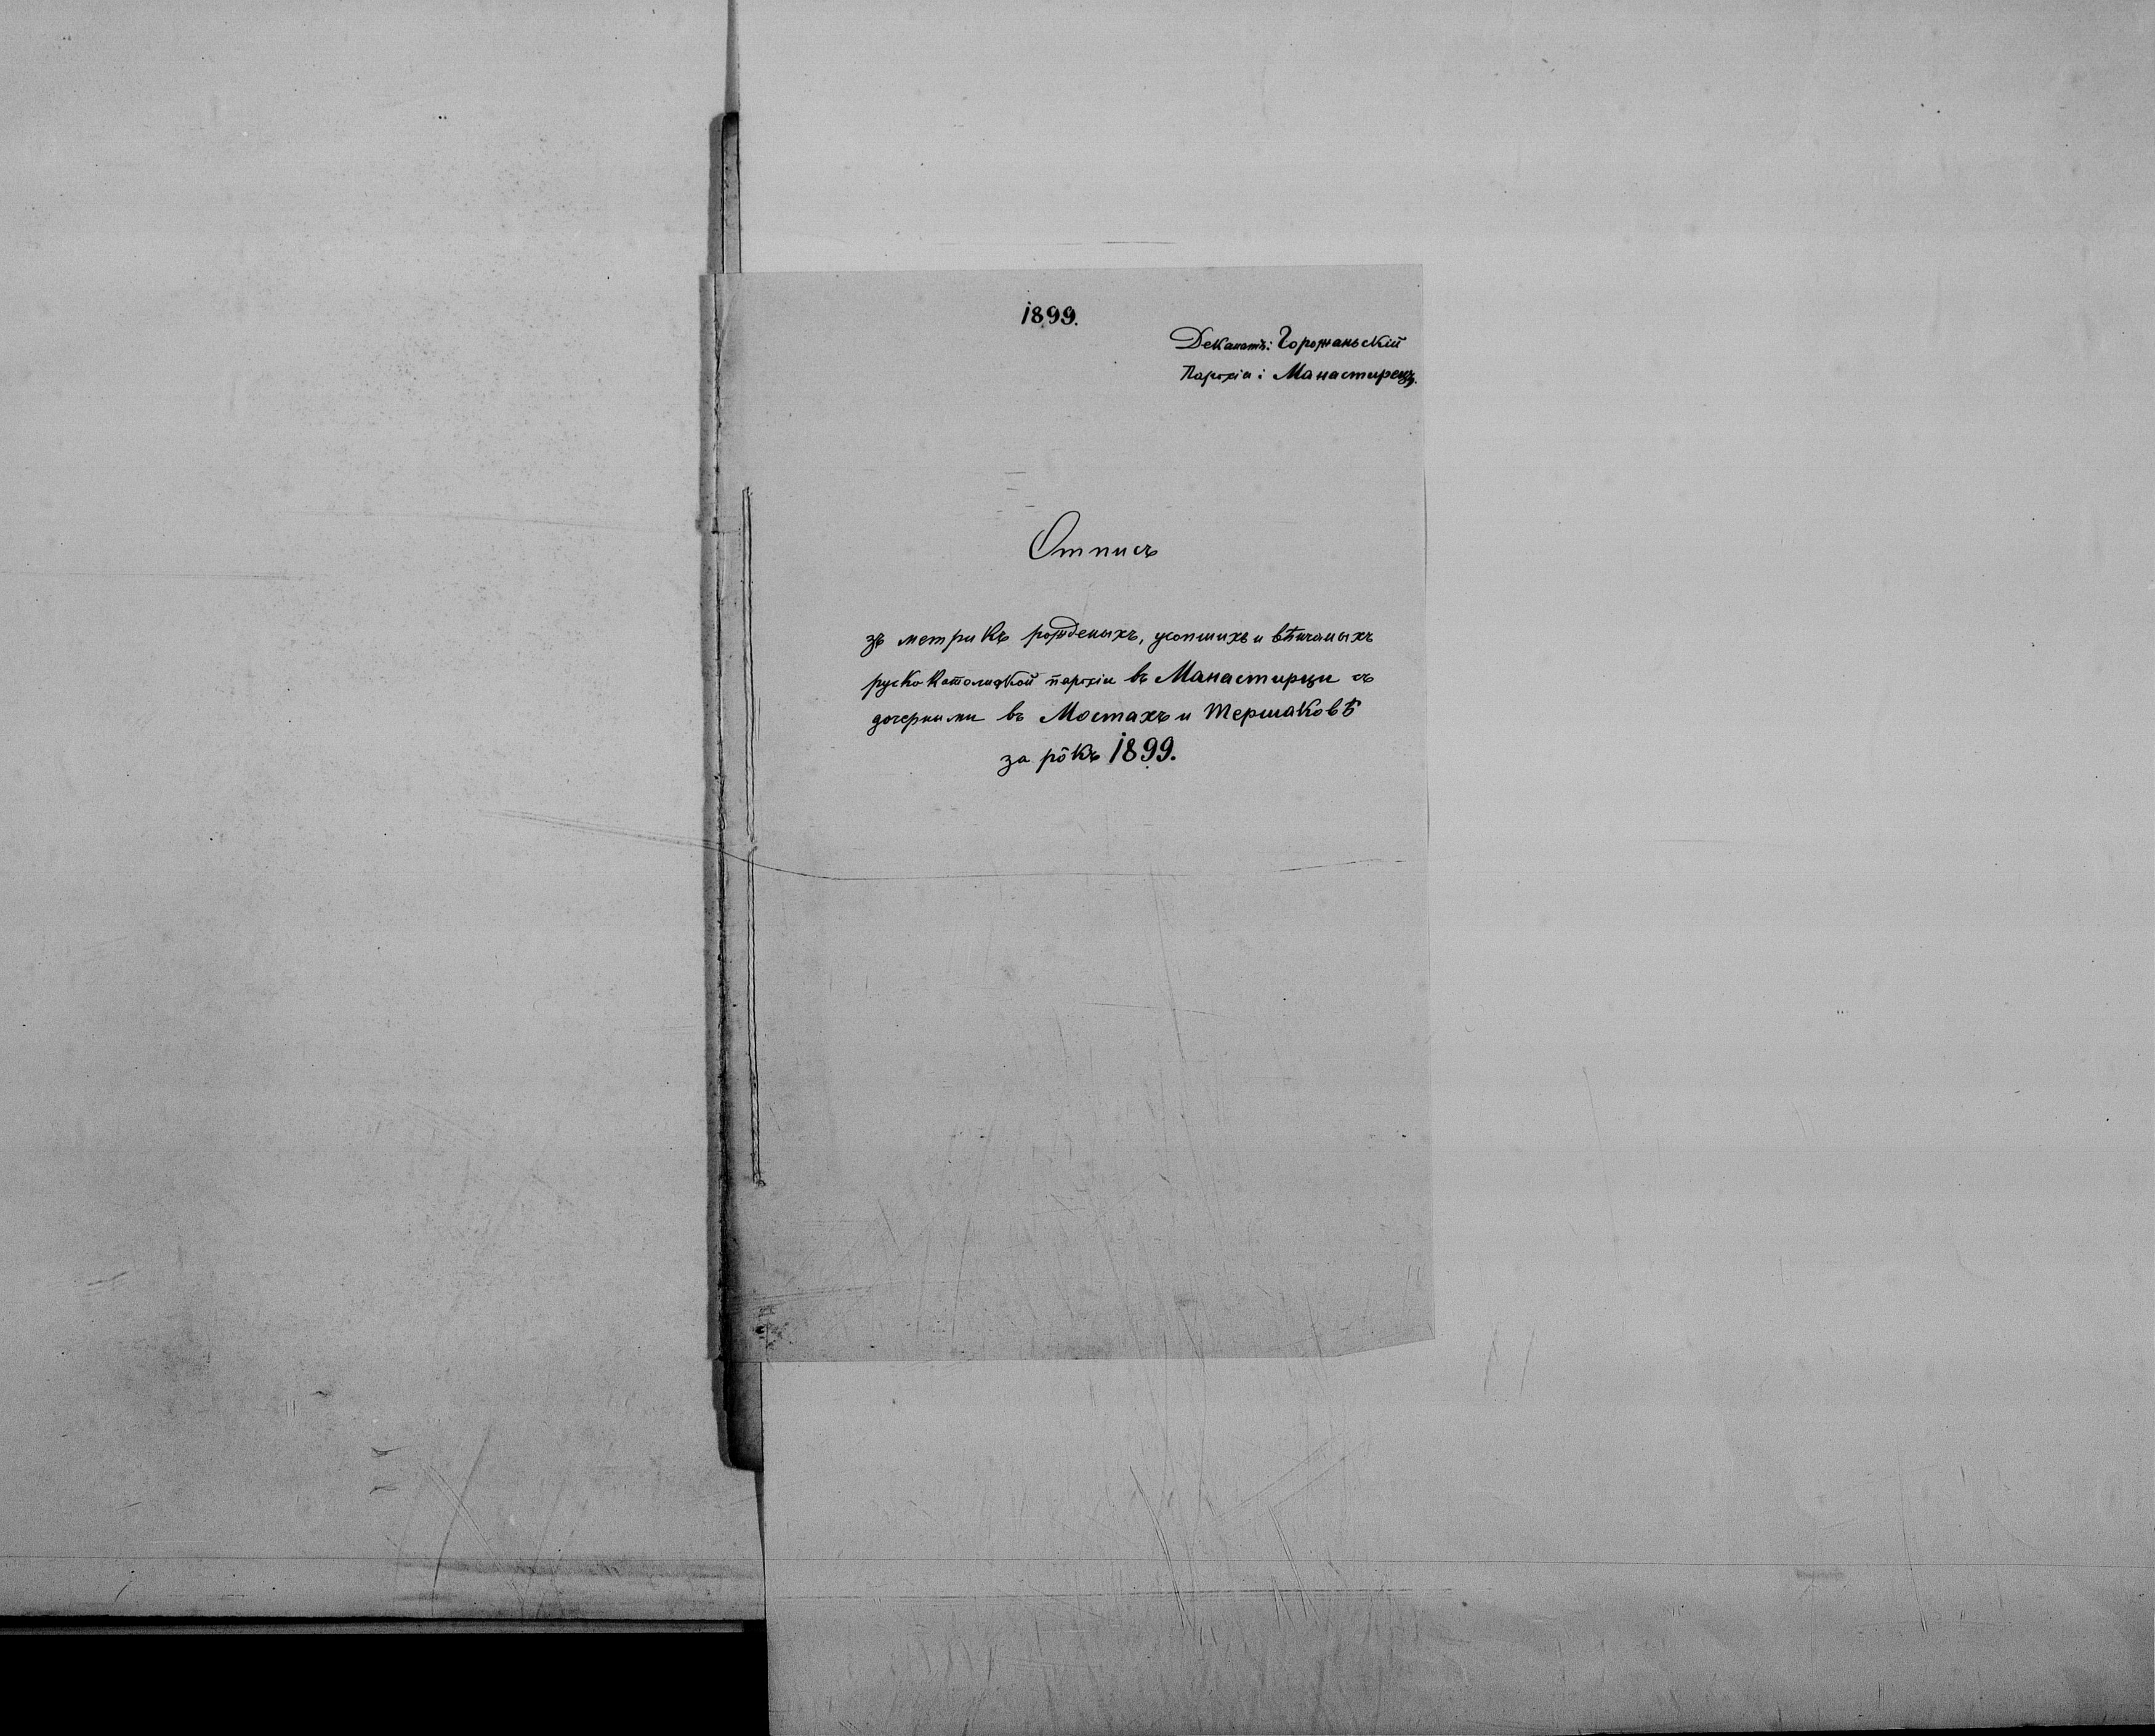 1899.
Деканатъ: Горожаньскій
Парохія: Манастирець.
Отписъ
зъ метрикъ рожденыхъ, усопшихъ и вѣнчаныхъ
руско католицкой парохіи въ Манастирци съ
дочерними въ Мостахъ и Тершаковѣ
за рôкъ 1899.